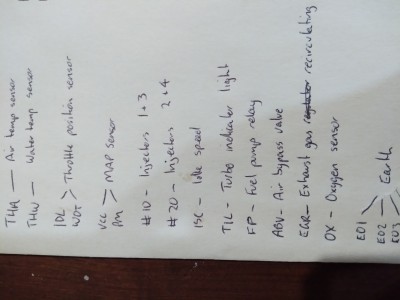 THA — Air temp sensor
THW — Water temp sensor
IDL
WOT > Throttle position sensor
VCC
PM > MAP sensor
#10 - Injectors 1+3
#20 - Injectors 2+4
ISC - Idle speed
TIL - Turbo indicator light
FP - Fuel pump relay
ABV - Air bypass valve
EGR - Exhaust gas recirculating
OX - Oxygen sensor
E01
E02 > Earth
E03